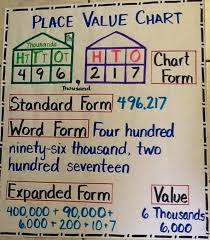 PLACE VALUE CHART
Thousands
H T T O T H T O
4 9 6 , 2 1 7
Thousand
Chart
Form
Standard Form 496,217
Word Form Four hundred
ninety-six thousand, two
hundred seventeen
Expanded Form Value
400,000 + 90,000+ 6 Thousands
6,000 + 200 + 10 + 7 6,000